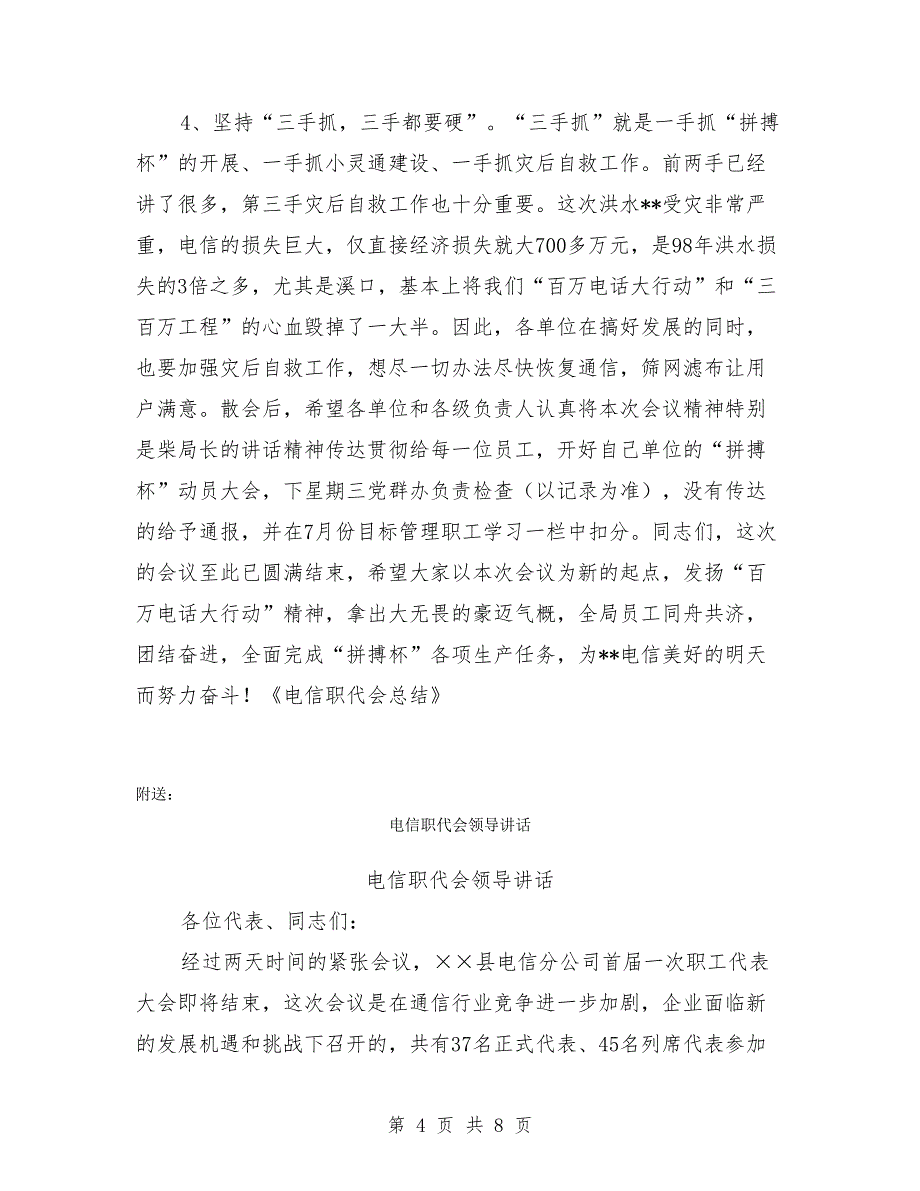 4、坚持“三手抓，三手都要硬”。“三手抓”就是一手抓“拼搏
杯”的开展、一手抓小灵通建设、一手抓灾后自救工作。前两手已经
讲了很多，第三手灾后自救工作也十分重要。这次洪水**受灾非常严
重，电信的损失巨大，仅直接经济损失就大700多万元，是98年洪水损
失的3倍之多，尤其是溪口，基本上将我们“百万电话大行动”和“三
百万工程”的心血毁掉了一大半。因此，各单位在搞好发展的同时，
也要加强灾后自救工作，想尽一切办法尽快恢复通信，筛网滤布让用
户满意。散会后，希望各单位和各级负责人认真将本次会议精神特别
是柴局长的讲话精神传达贯彻给每一位员工，开好自己单位的“拼搏
杯”动员大会，下星期三党群办负责检查（以记录为准），没有传达
的给予通报，并在7月份目标管理职工学习一栏中扣分。同志们，这次
的会议至此已圆满结束，希望大家以本次会议为新的起点，发扬“百
万电话大行动”精神，拿出大无畏的豪迈气概，全局员工同舟共济，
团结奋进，全面完成“拼搏杯”各项生产任务，为**电信美好的明天
而努力奋斗！《电信职代会总结》
附送：
电信职代会领导讲话
电信职代会领导讲话
各位代表、同志们：
经过两天时间的紧张会议，××县电信分公司首届一次职工代表
大会即将结束，这次会议是在通信行业竞争进一步加剧，企业面临新
的发展机遇和挑战下召开的，共有37名正式代表、45名列席代表参加
第 4 页 共 8 页